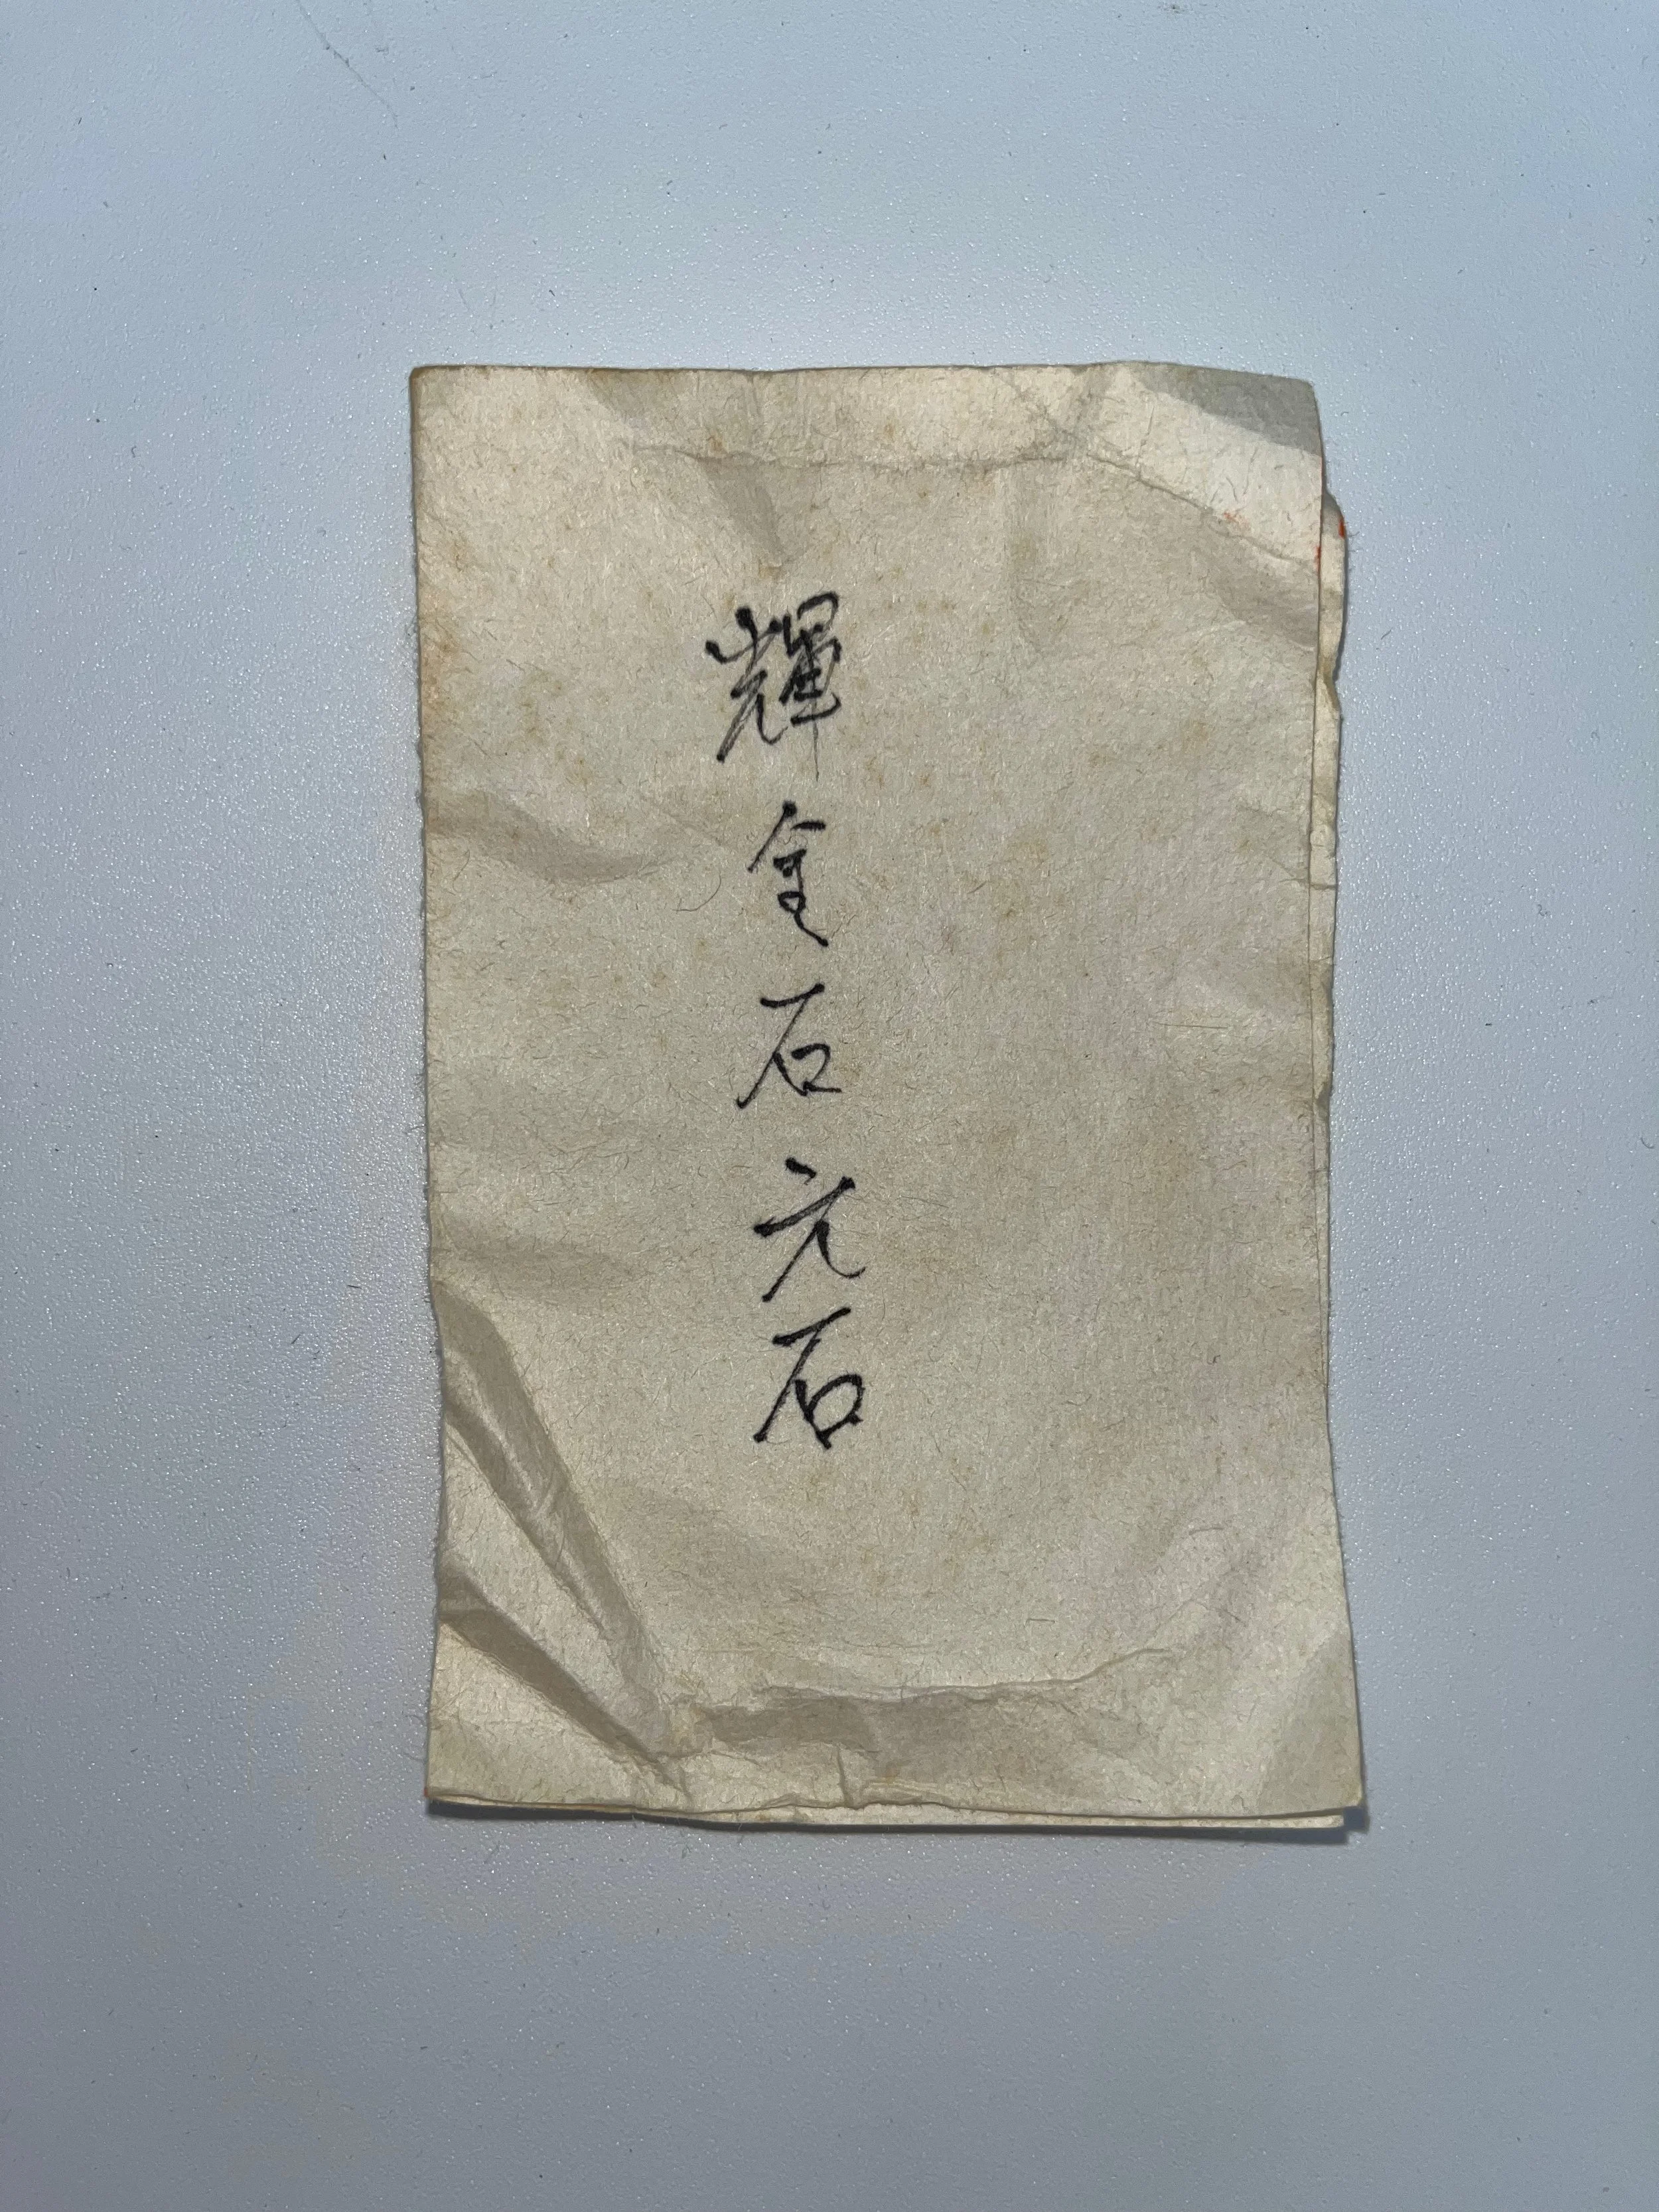 輝金石元石